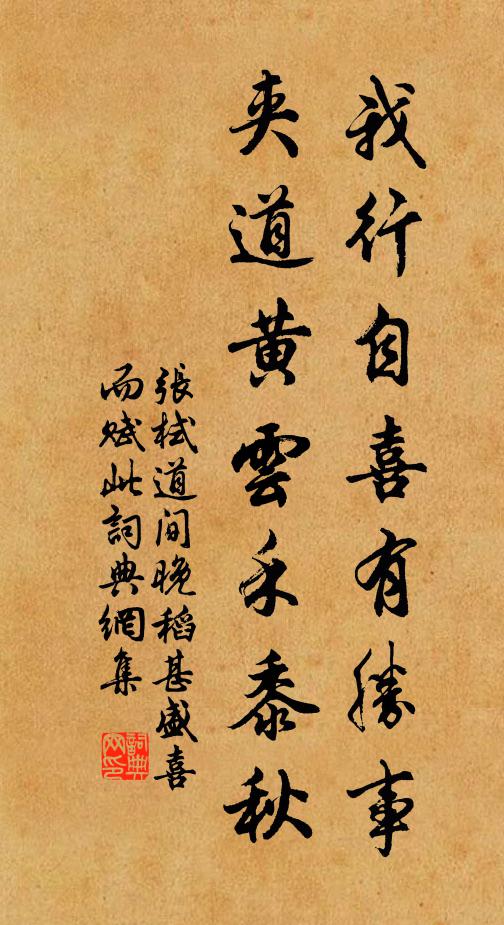 我行自喜有勝事
夾道黄雲禾黍秋
張栻道间晚稻甚盛喜
而赋此詞典網集
詞典
网印